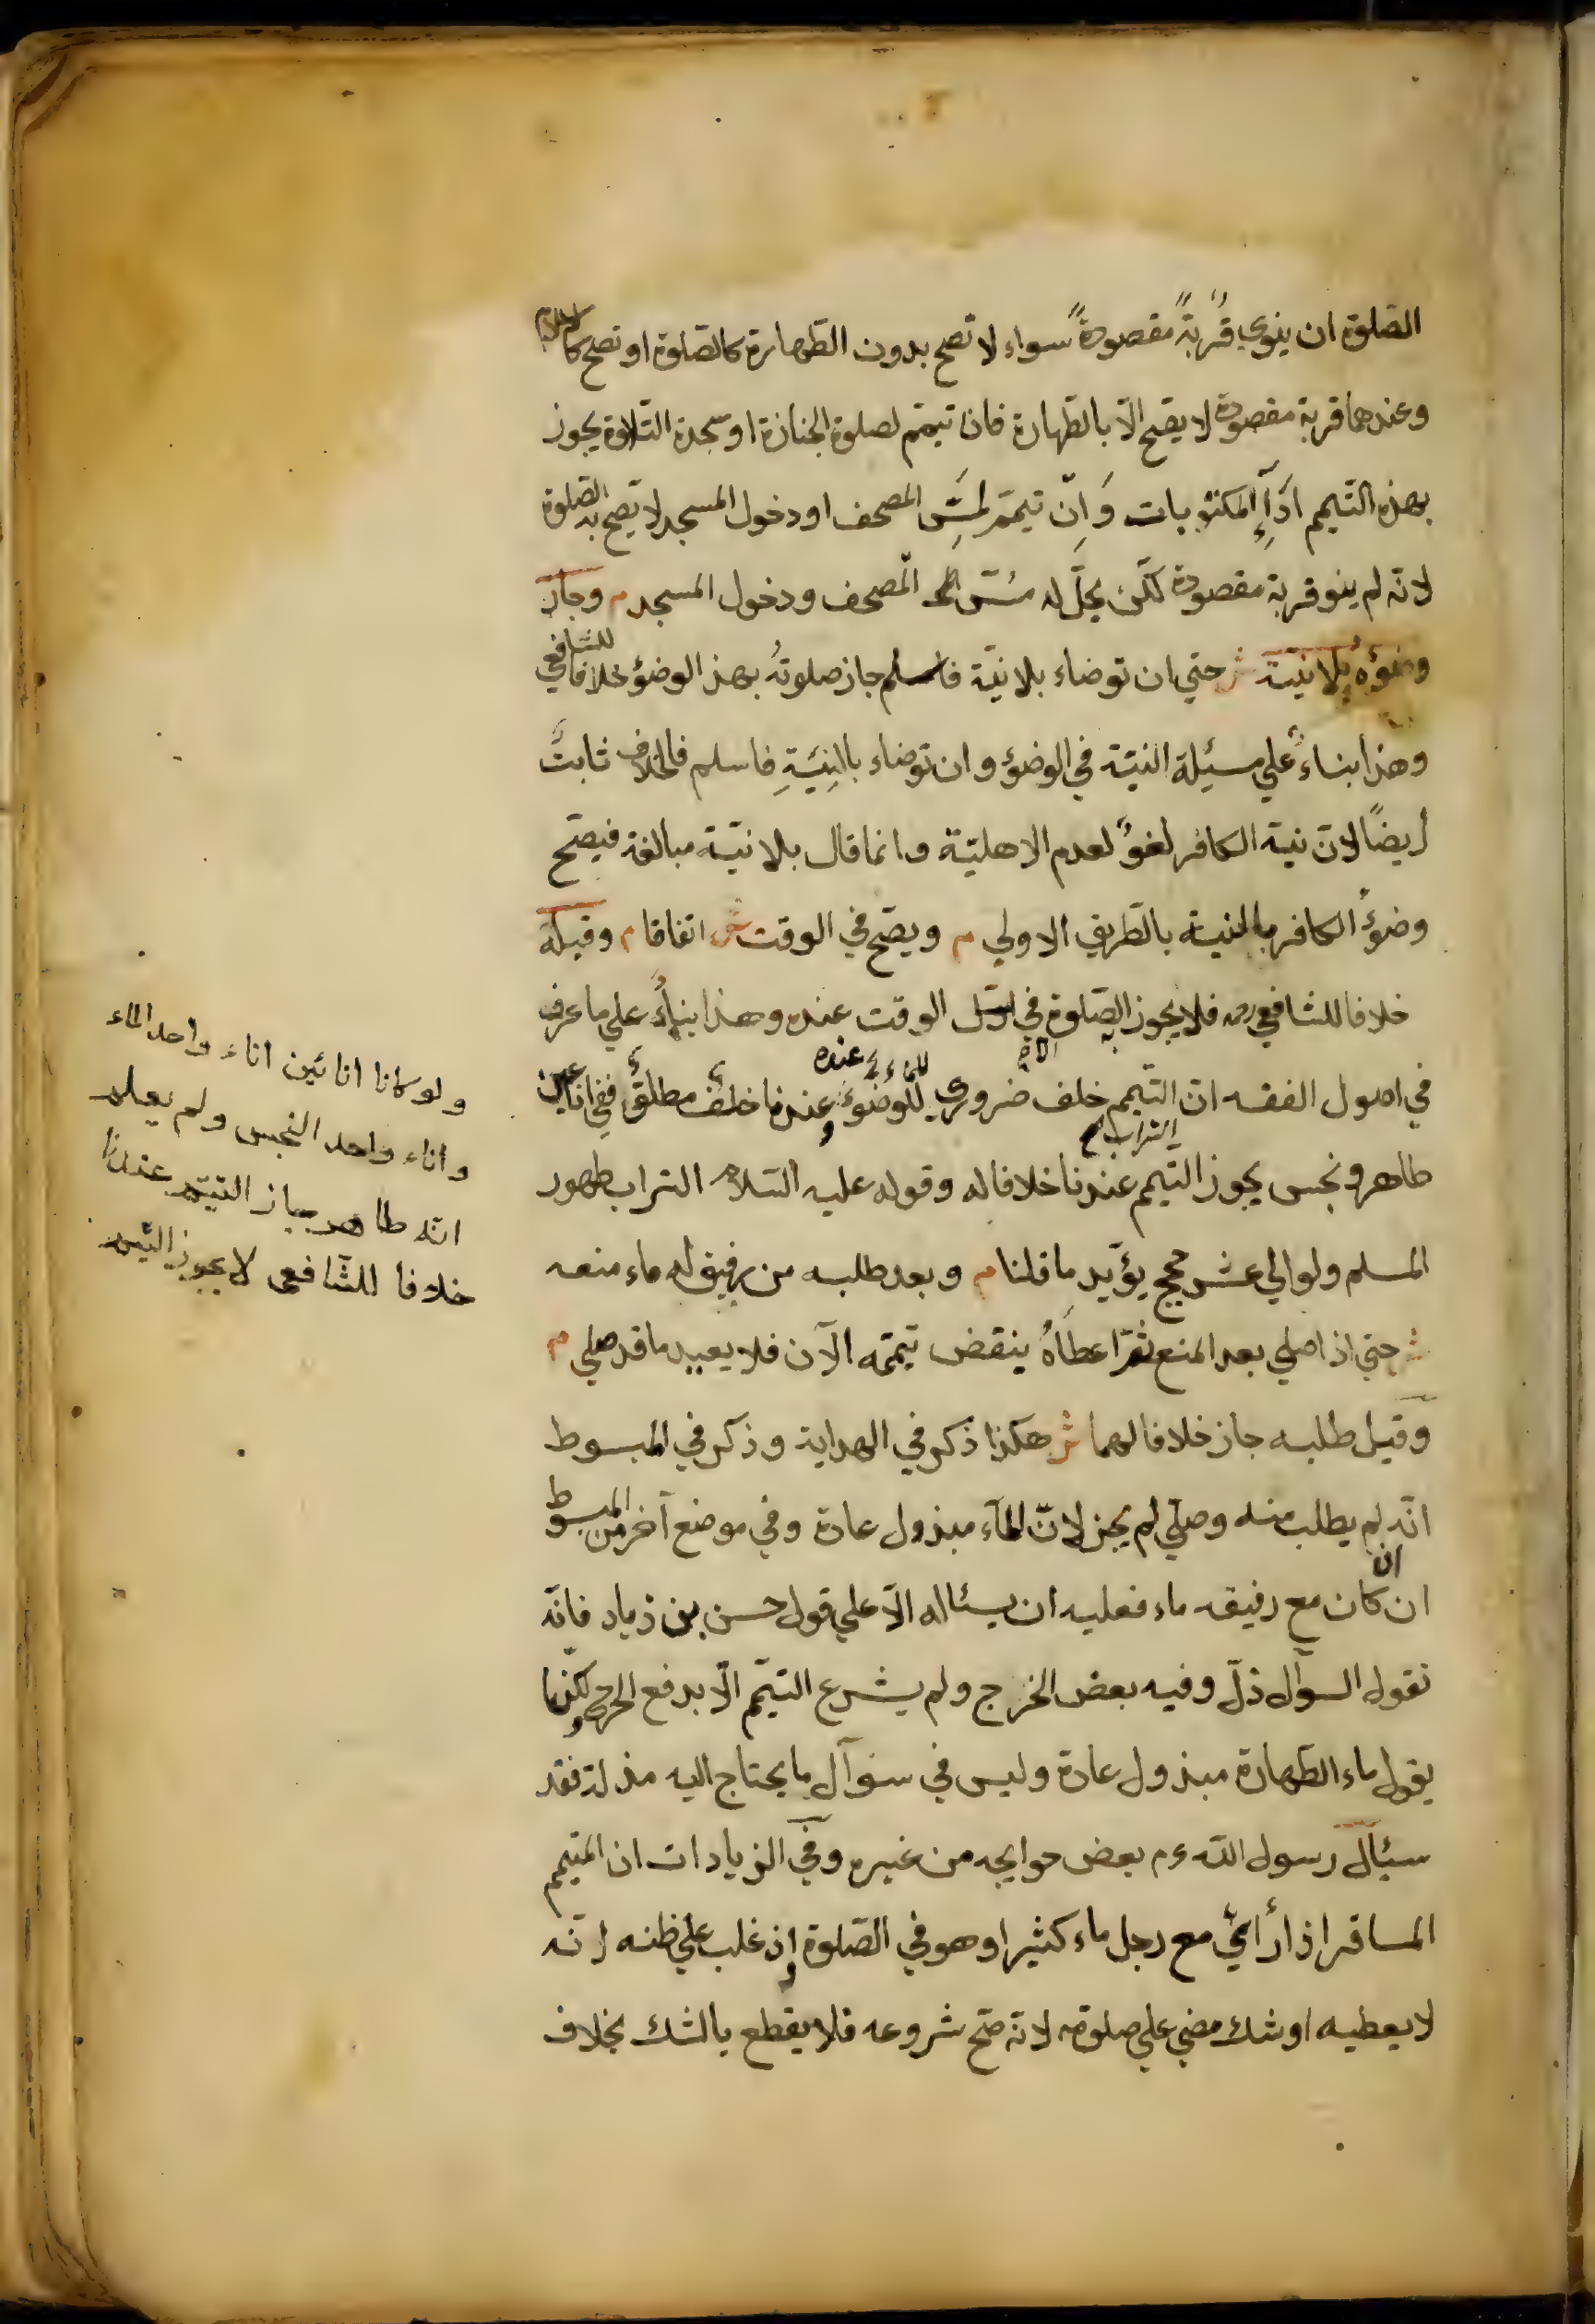 الصّلوة ان ينوي قُربةً مقصودةً سواء لا تصح بدون الطّهارة كالصّلوة او تصح كالاسلام
وعندهما قربة مقصودة لا يصح الّا بالطّهارة فان تيمّم لصلوة الجنازة او سجدة التّلاوة يجوز
بهذه التّيمم ادآء المكتوبات وَاِن تيمّم لمسّ المصحف او دخول المسجد لا تصح به الصّلوة
لانّه لم ينو قربة مقصودة لكن يحلّ له مسّ المصحف ودخول المسجد م وجاز
وضوءُه بلا نيّة ش حتي ان توضاء بلا نيّة فاسلم جاز صلوتُه بهذ الوضؤ خلافا للشافعي
وهذا بناءً علي مسئلة النيّة في الوضؤ وان توضاء بالنِيَّةِ فاسلم فالخلاف ثابتٌ
ايضًا لانّ نية الكافر لغوٌ لعدم الاهليّة وانما قال بلا نيّة مبالغة فيصّح
وضوءُ الكافر بالنية بالطّريق الاولي م ويصّح في الوقت ش اتفاقا م وقبله
خلافا للشافعي رح فلا يجوز به الصّلوة في اوّل الوقت عنده وهذا بناءً علي ما عرف
في اصول الفقه انّ التّيمم خلف ضروري للوضوء عنده وعندنا خلف مطلق ففي انائين
طاهر ونجس يجوز التّيمم عندنا خلافا له وقوله عليه السّلام التراب طهور
المسلم ولو الي عشر حجج يؤيّد ما قلنا م وبعد طلبه من رفيق له ماء منعه
ش حتي اذا صلي بعد المنع ثمّ اعطاهُ ينقض تيمّمه الآن فلا يعيد ما قد صلي م
وقبل طلبه جاز خلافا لهما ش هكذا ذكر في الهداية وذكر في المبسوط
انّه لم يطلب منه وصلّي لم يجز لانّ المآء مبذول عادة وفي موضع آخر من المبسوط
ان ان كان مع رفيقه ماء فعليه ان يسئاله الّا علي قول حسن بن زياد فانّه
تقول السوآل ذلّ وفيه بعض الخرج ولم يشرع التيّمم الّا بدفع الحرج ولكنّا
يقول ماء الطّهارة مبذول عادة وليس في سنوآل ما يحتاج اليه مذلة فقد
سئآل رسول اللّه ءم بعض حوايجه من غيره وفي الزيادات ان المتيمم
المسافر اذا رأي مع رجل ماء كثيرا وهو في الصّلوة واذ غلب علي ظنه انّه
لا يعطيه او شك مضي علي صلوته لانّه صّح شروعه فلا يقطع بالشك بخلاف
ولو كانا انائين اناء واحد الماء
واناء واحد النجس ولم يعلم
انّه طاهر جاز التيمّم عندنا
خلافا للشّافعى لا يجوز التّيمم